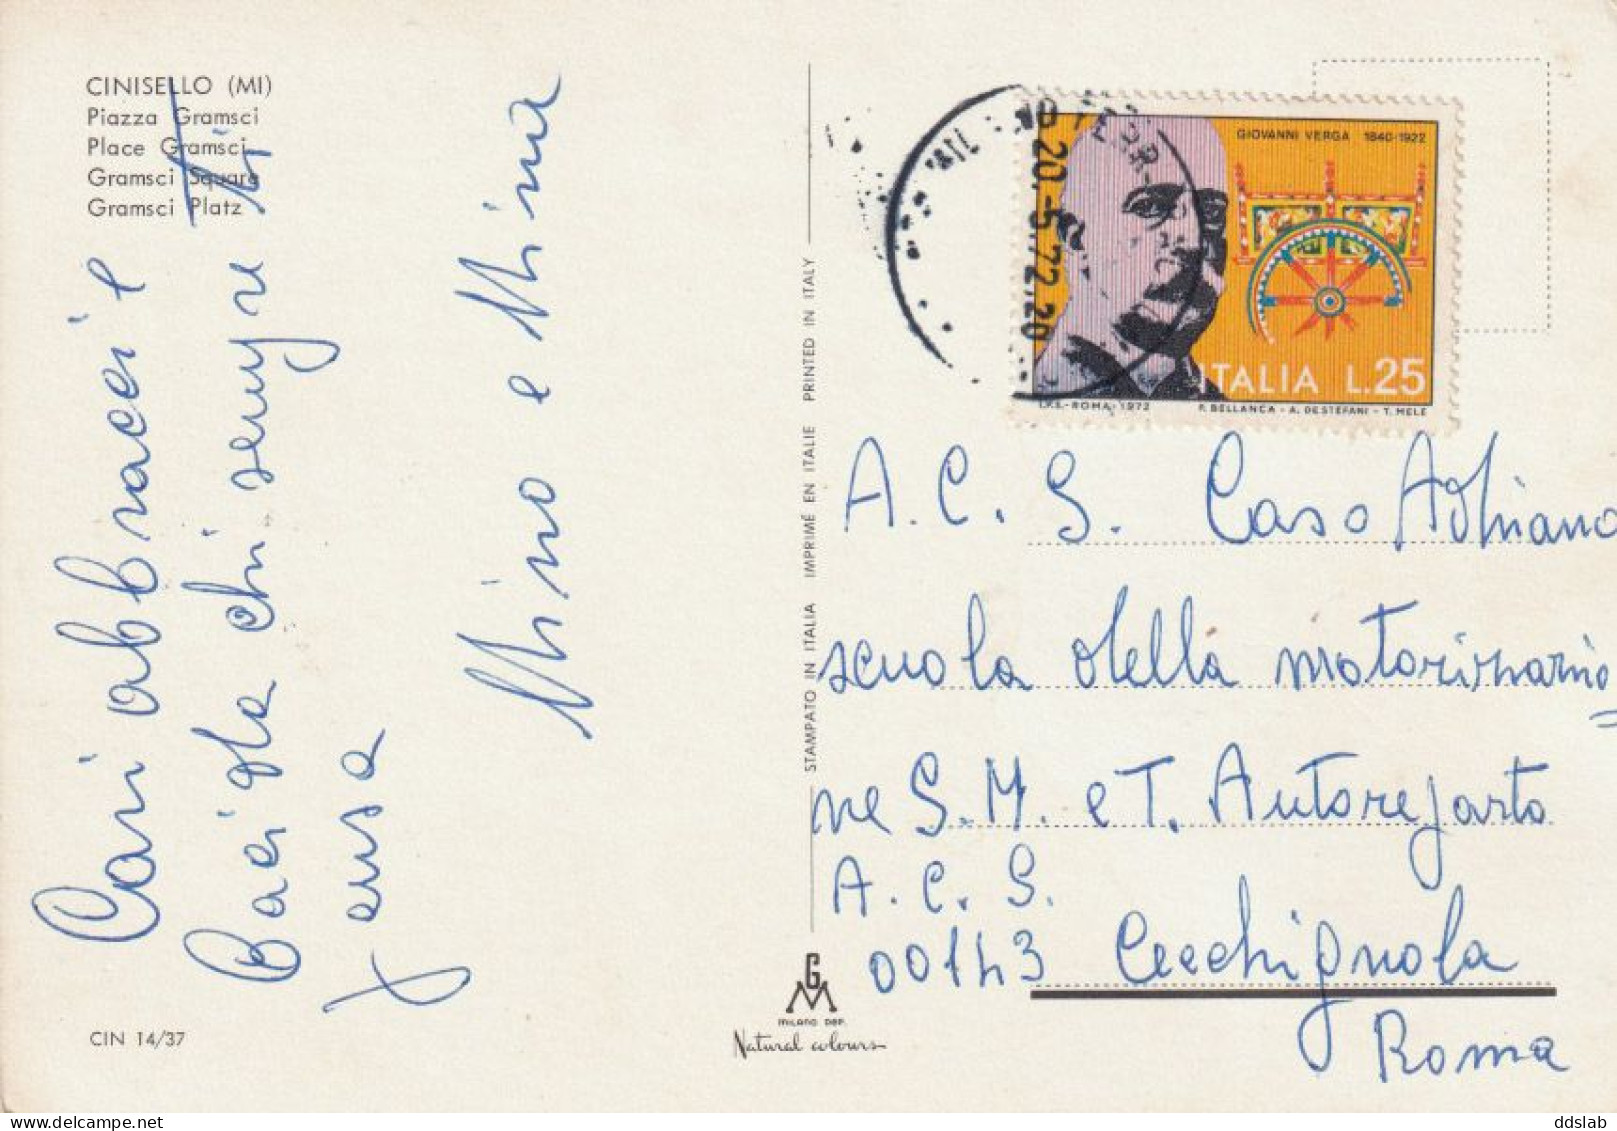 CINISELLO (MI)
Piazza Gramsci
Place Gramsci
Gramsci Square
Gramsci Platz
Cari abbracci e
Baci da chi sempre ti
pensa
Mino e Mina
CIN 14/37
STAMPATO IN ITALIA IMPRIMÉ EN ITALIE PRINTED IN ITALY
GM
MILANO DEP.
Natural colours
20.-5.72.20
GIOVANNI VERGA 1840-1922
ITALIA L.25
I.P.S.-ROMA-1972 P. BELLANCA - A. DESTEFANI - T. MELE
A.C.S. Caso Adriano
scuola della motorizzazio
ne S.M. e T. Autoreparto
A.C.S.
00143 Cecchignola
Roma
ddslab
www.delcampe.net